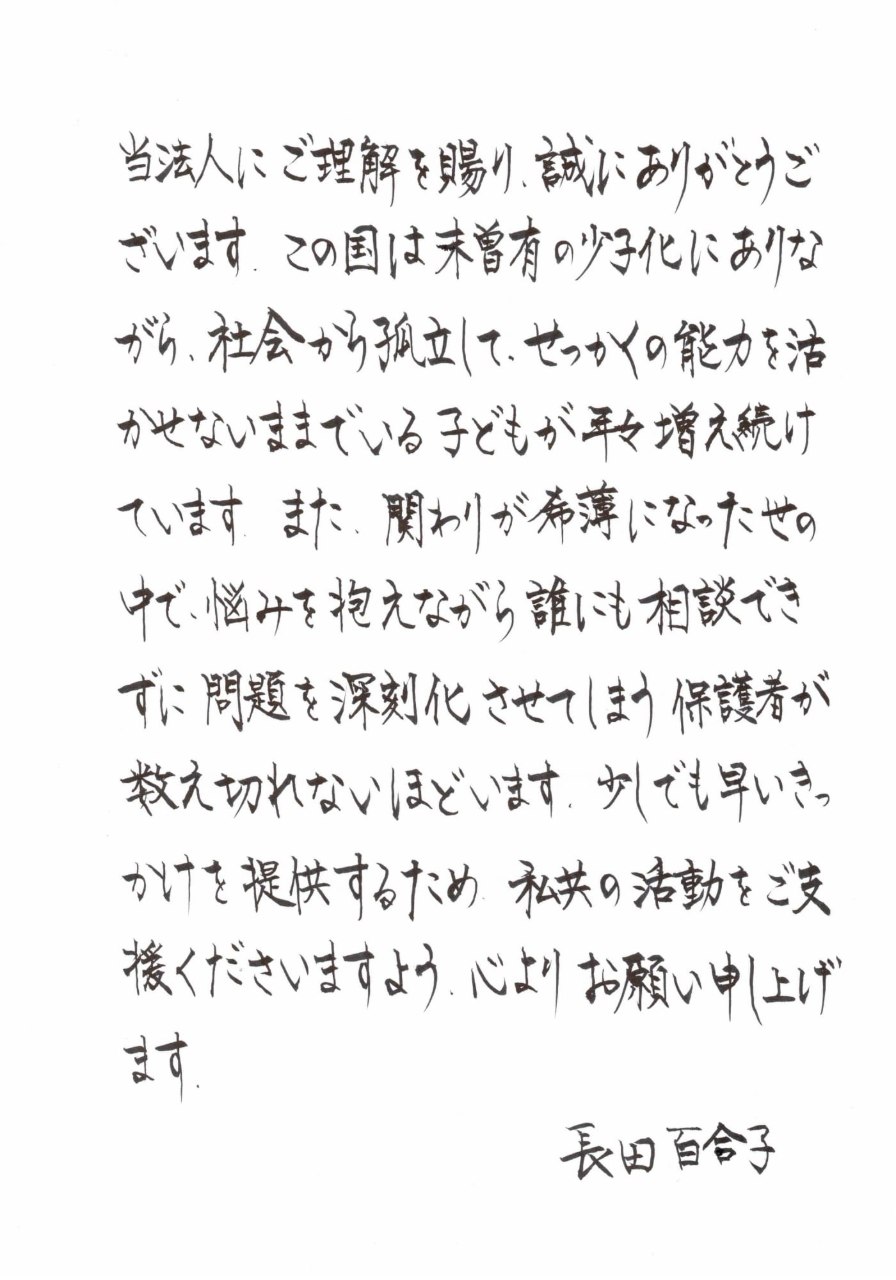 当法人にご理解を賜り、誠にありがとうご
ざいます。この国は未曽有の少子化にありな
がら、社会から孤立して、せっかくの能力を活
かせないままでいる子どもが年々増え続け
ています。また、関わりが希薄になった世の
中で、悩みを抱えながら誰にも相談でき
ずに問題を深刻化させてしまう保護者が
数え切れないほどいます。少しでも早いきっ
かけを提供するため、私共の活動をご支
援くださいますよう、心よりお願い申し上げ
ます。
長田百合子